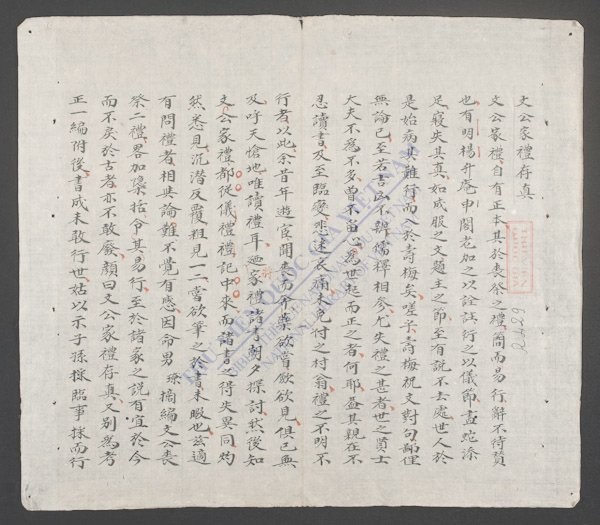 文公家禮存真
文公家禮自有正本其於喪祭之禮簡而易行辭不待贅
也有明楊升庵申閣老加之以詮註衍之以儀節畫蛇添
足寢失其真如成服之文題主之節至有說不去處世人於
是始病其難行而入於壽梅矣嗟乎壽梅祝文對句鄙俚
無論已至若吉凶不辨儒釋相參尤失禮之甚者世之賢士
大夫不爲不多曾不留心爲世起而正之者何耶蓋其親在不
忍讀書及至臨變悲迷哀痛未免付之村翁禮之不明不
行者以此余昔年遊宦聞喪而奔藥欲嘗歛欲見俱已無
及呼天愴地唯讀禮耳迺家禮諸書朝夕探討然後知
文公家禮都從儀禮禮記中來而諸書之得失異同灼
然悉見沉潜反覆粗見一二嘗欲筆之於書未暇也玆適
有問禮者相與論難不覺有感因命男 摘編文公喪
祭二禮畧加檃括令其易行至於諸家之說有宜於今
而不戾於古者亦不敢廢顏曰文公家禮存真又別爲考
正一編附後書成未敢行世姑以示子孫探臨事採而行
2229
THƯ VIỆN QUỐC GIA VIỆT NAM
NATIONAL LIBRARY OF VIETNAM